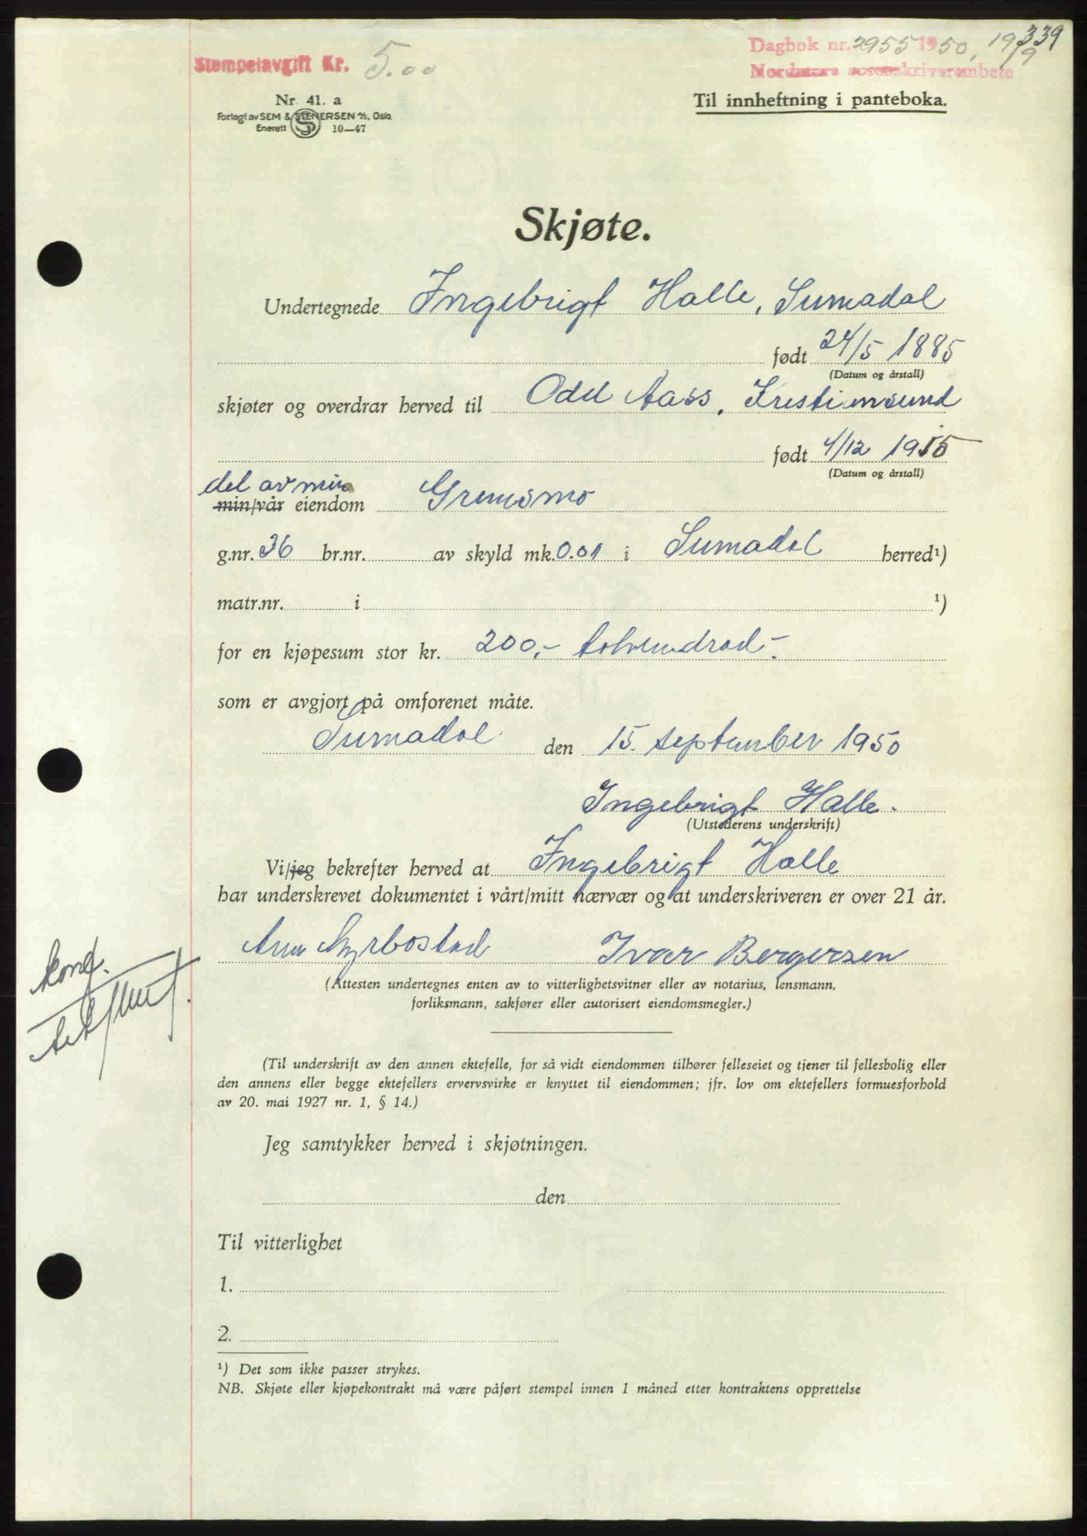 Stempelavgift Kr. 5.00
Dagbok nr. 2955 1950, 19/9
339
Nordmøre sorenskriverembete
Nr. 41. a
Forlagt av SEM & STENERSEN A/S, Oslo.
Enerett S 10—47
Til innheftning i panteboka.
Skjøte.
Undertegnede Ingebrigt Halle, Surnadal
født 24/5 1885
(Datum og årstall)
skjøter og overdrar herved til Odd Aass, Kristiansund
født 4/12 1915
(Datum og årstall)
del av min
min/vår eiendom Grensmo
g.nr. 36 br.nr. av skyld mk. 0.01 i Surnadal herred¹)
matr.nr. i ¹)
for en kjøpesum stor kr. 200,- tohundrad-
som er avgjort på omforenet måte.
Surnadal den 15. september 1950
Ingebrigt Halle.
(Utstederens underskrift)
Vi/jeg bekrefter herved at Ingebrigt Halle
har underskrevet dokumentet i vårt/mitt nærvær og at underskriveren er over 21 år.
Ivar Bergersen
(Attesten undertegnes enten av to vitterlighetsvitner eller av notarius, lensmann,
forliksmann, sakfører eller autorisert eiendomsmegler.)
(Til underskrift av den annen ektefelle, for så vidt eiendommen tilhører felleseiet og tjener til fellesbolig eller
den annens eller begge ektefellers ervervsvirke er knyttet til eiendommen; jfr. lov om ektefellers formuesforhold
av 20. mai 1927 nr. 1, § 14.)
Jeg samtykker herved i skjøtningen.
den
Til vitterlighet
1.
2.
¹) Det som ikke passer strykes.
NB. Skjøte eller kjøpekontrakt må være påført stempel innen 1 måned etter kontraktens opprettelse